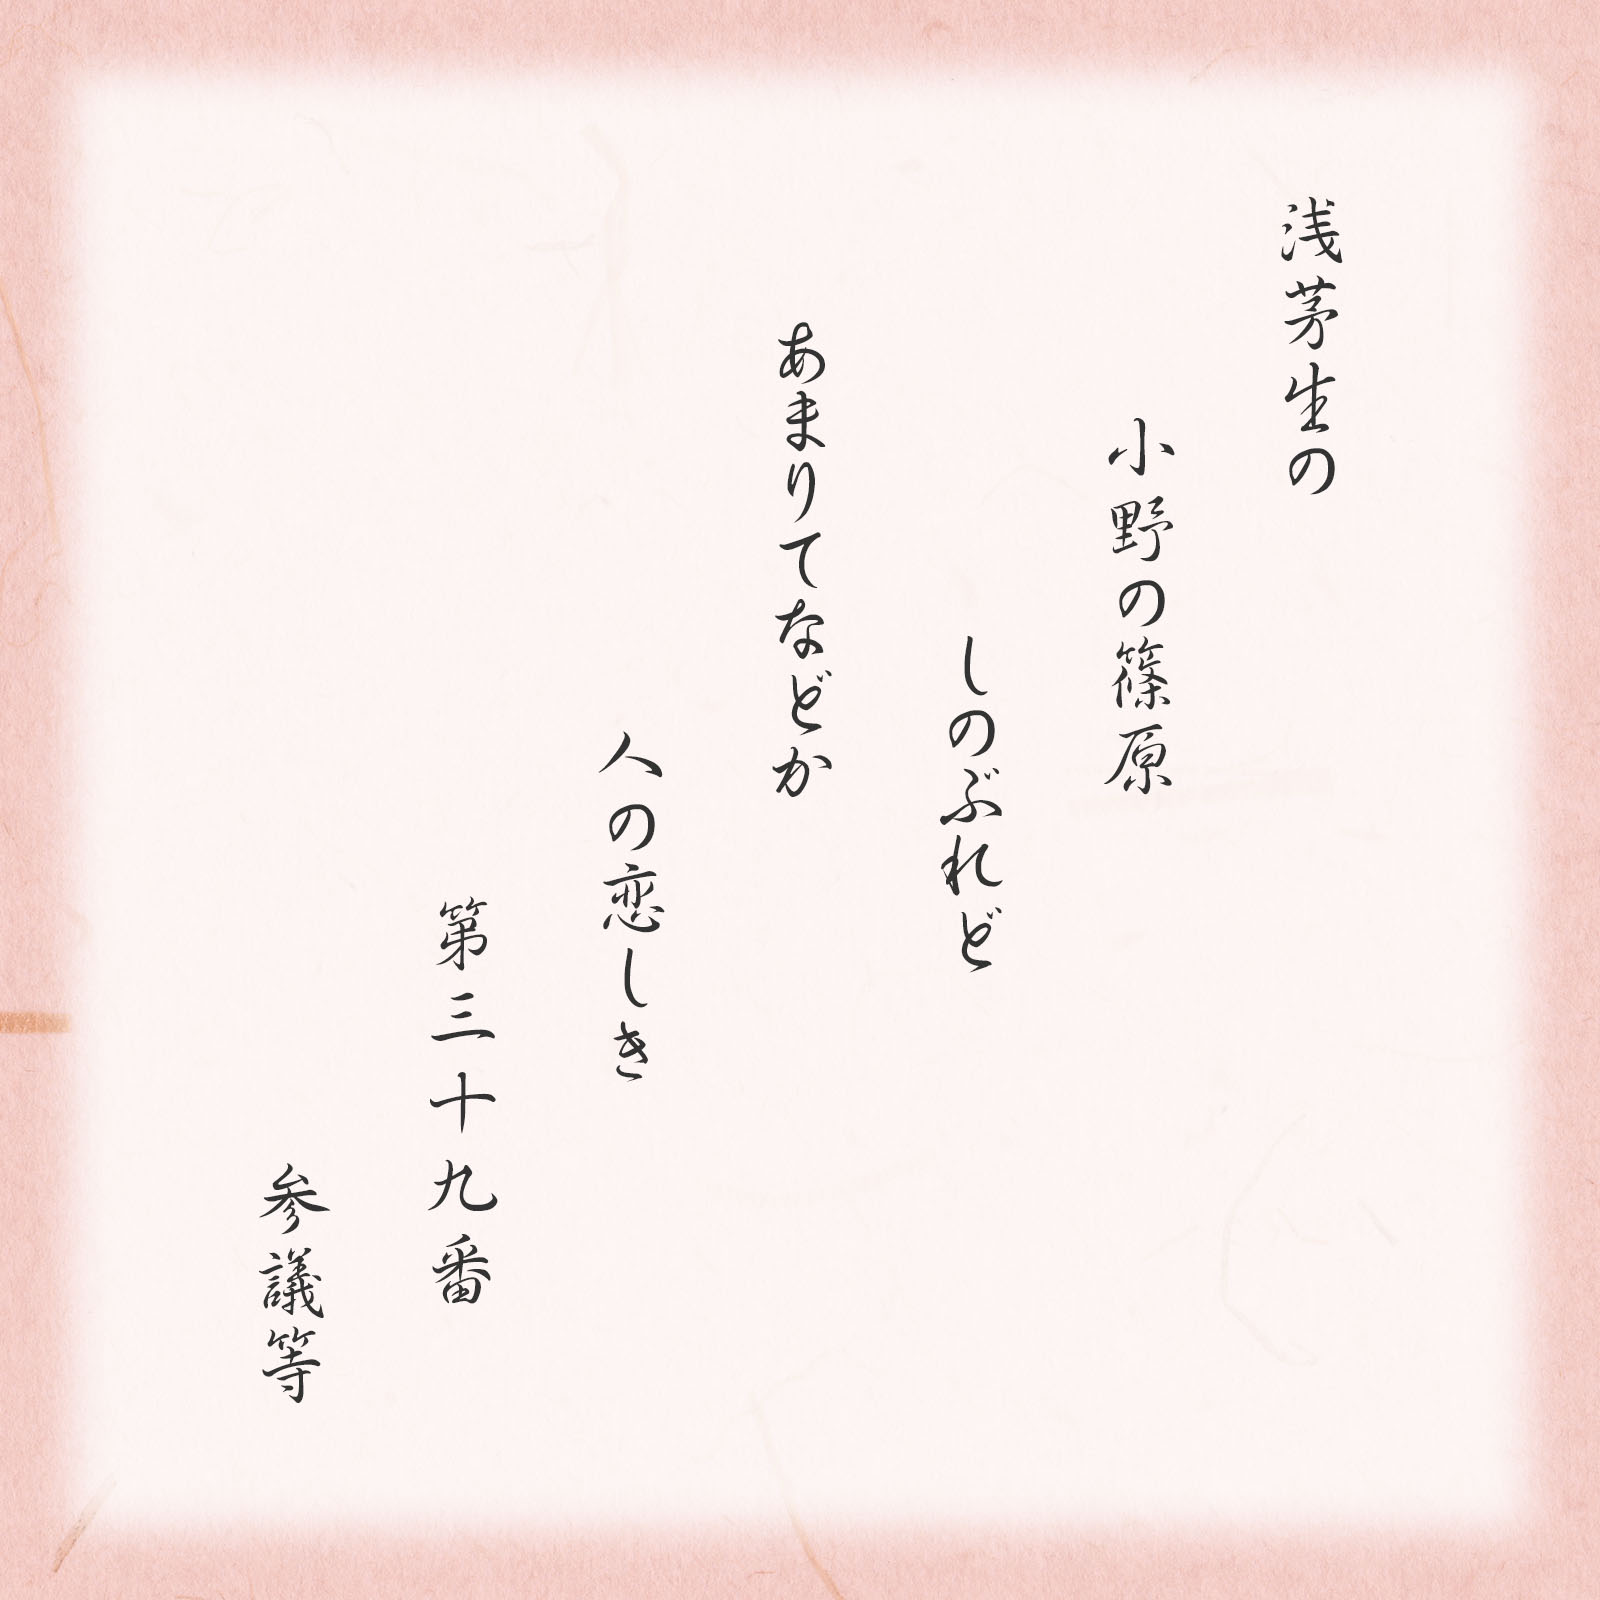 浅茅生の
小野の篠原
しのぶれど
あまりてなどか
人の恋しき
第三十九番
参議等